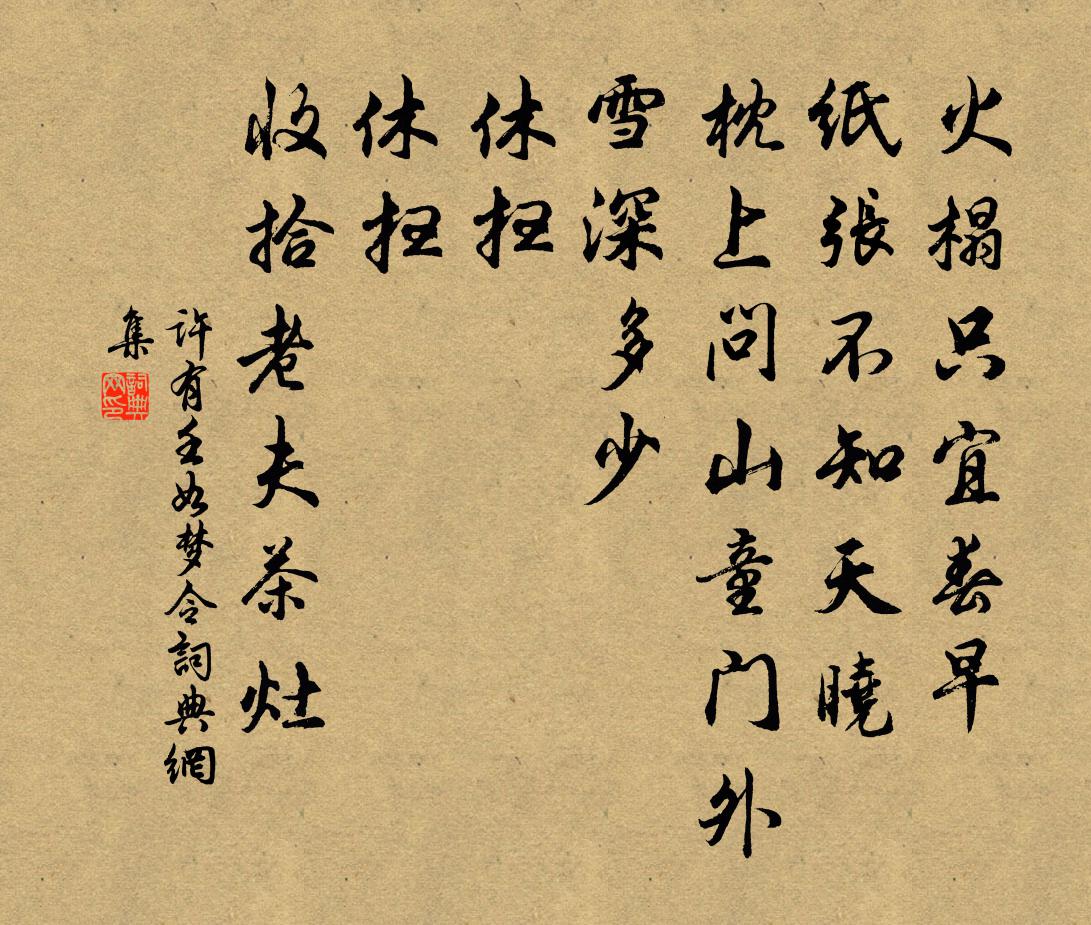 火榻只宜春早
紙張不知天曉
枕上问山童门外
雪深多少
休扫
休扫
收拾老夫茶灶
許有壬如梦令詞典網
集
詞典
网印